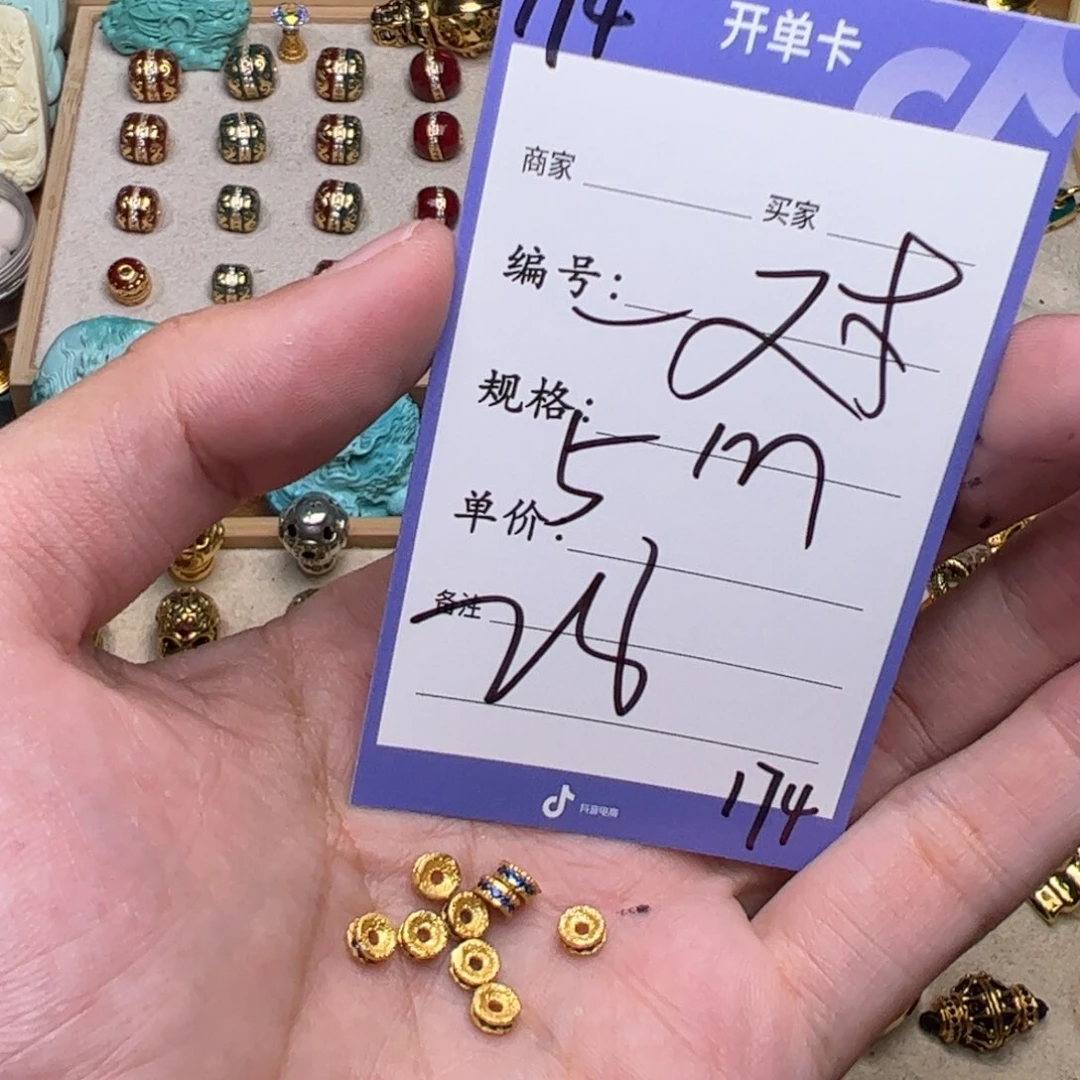 174
开单卡
商家 买家
编号: 一对
规格: 5m
单价:
备注
174
抖音电商